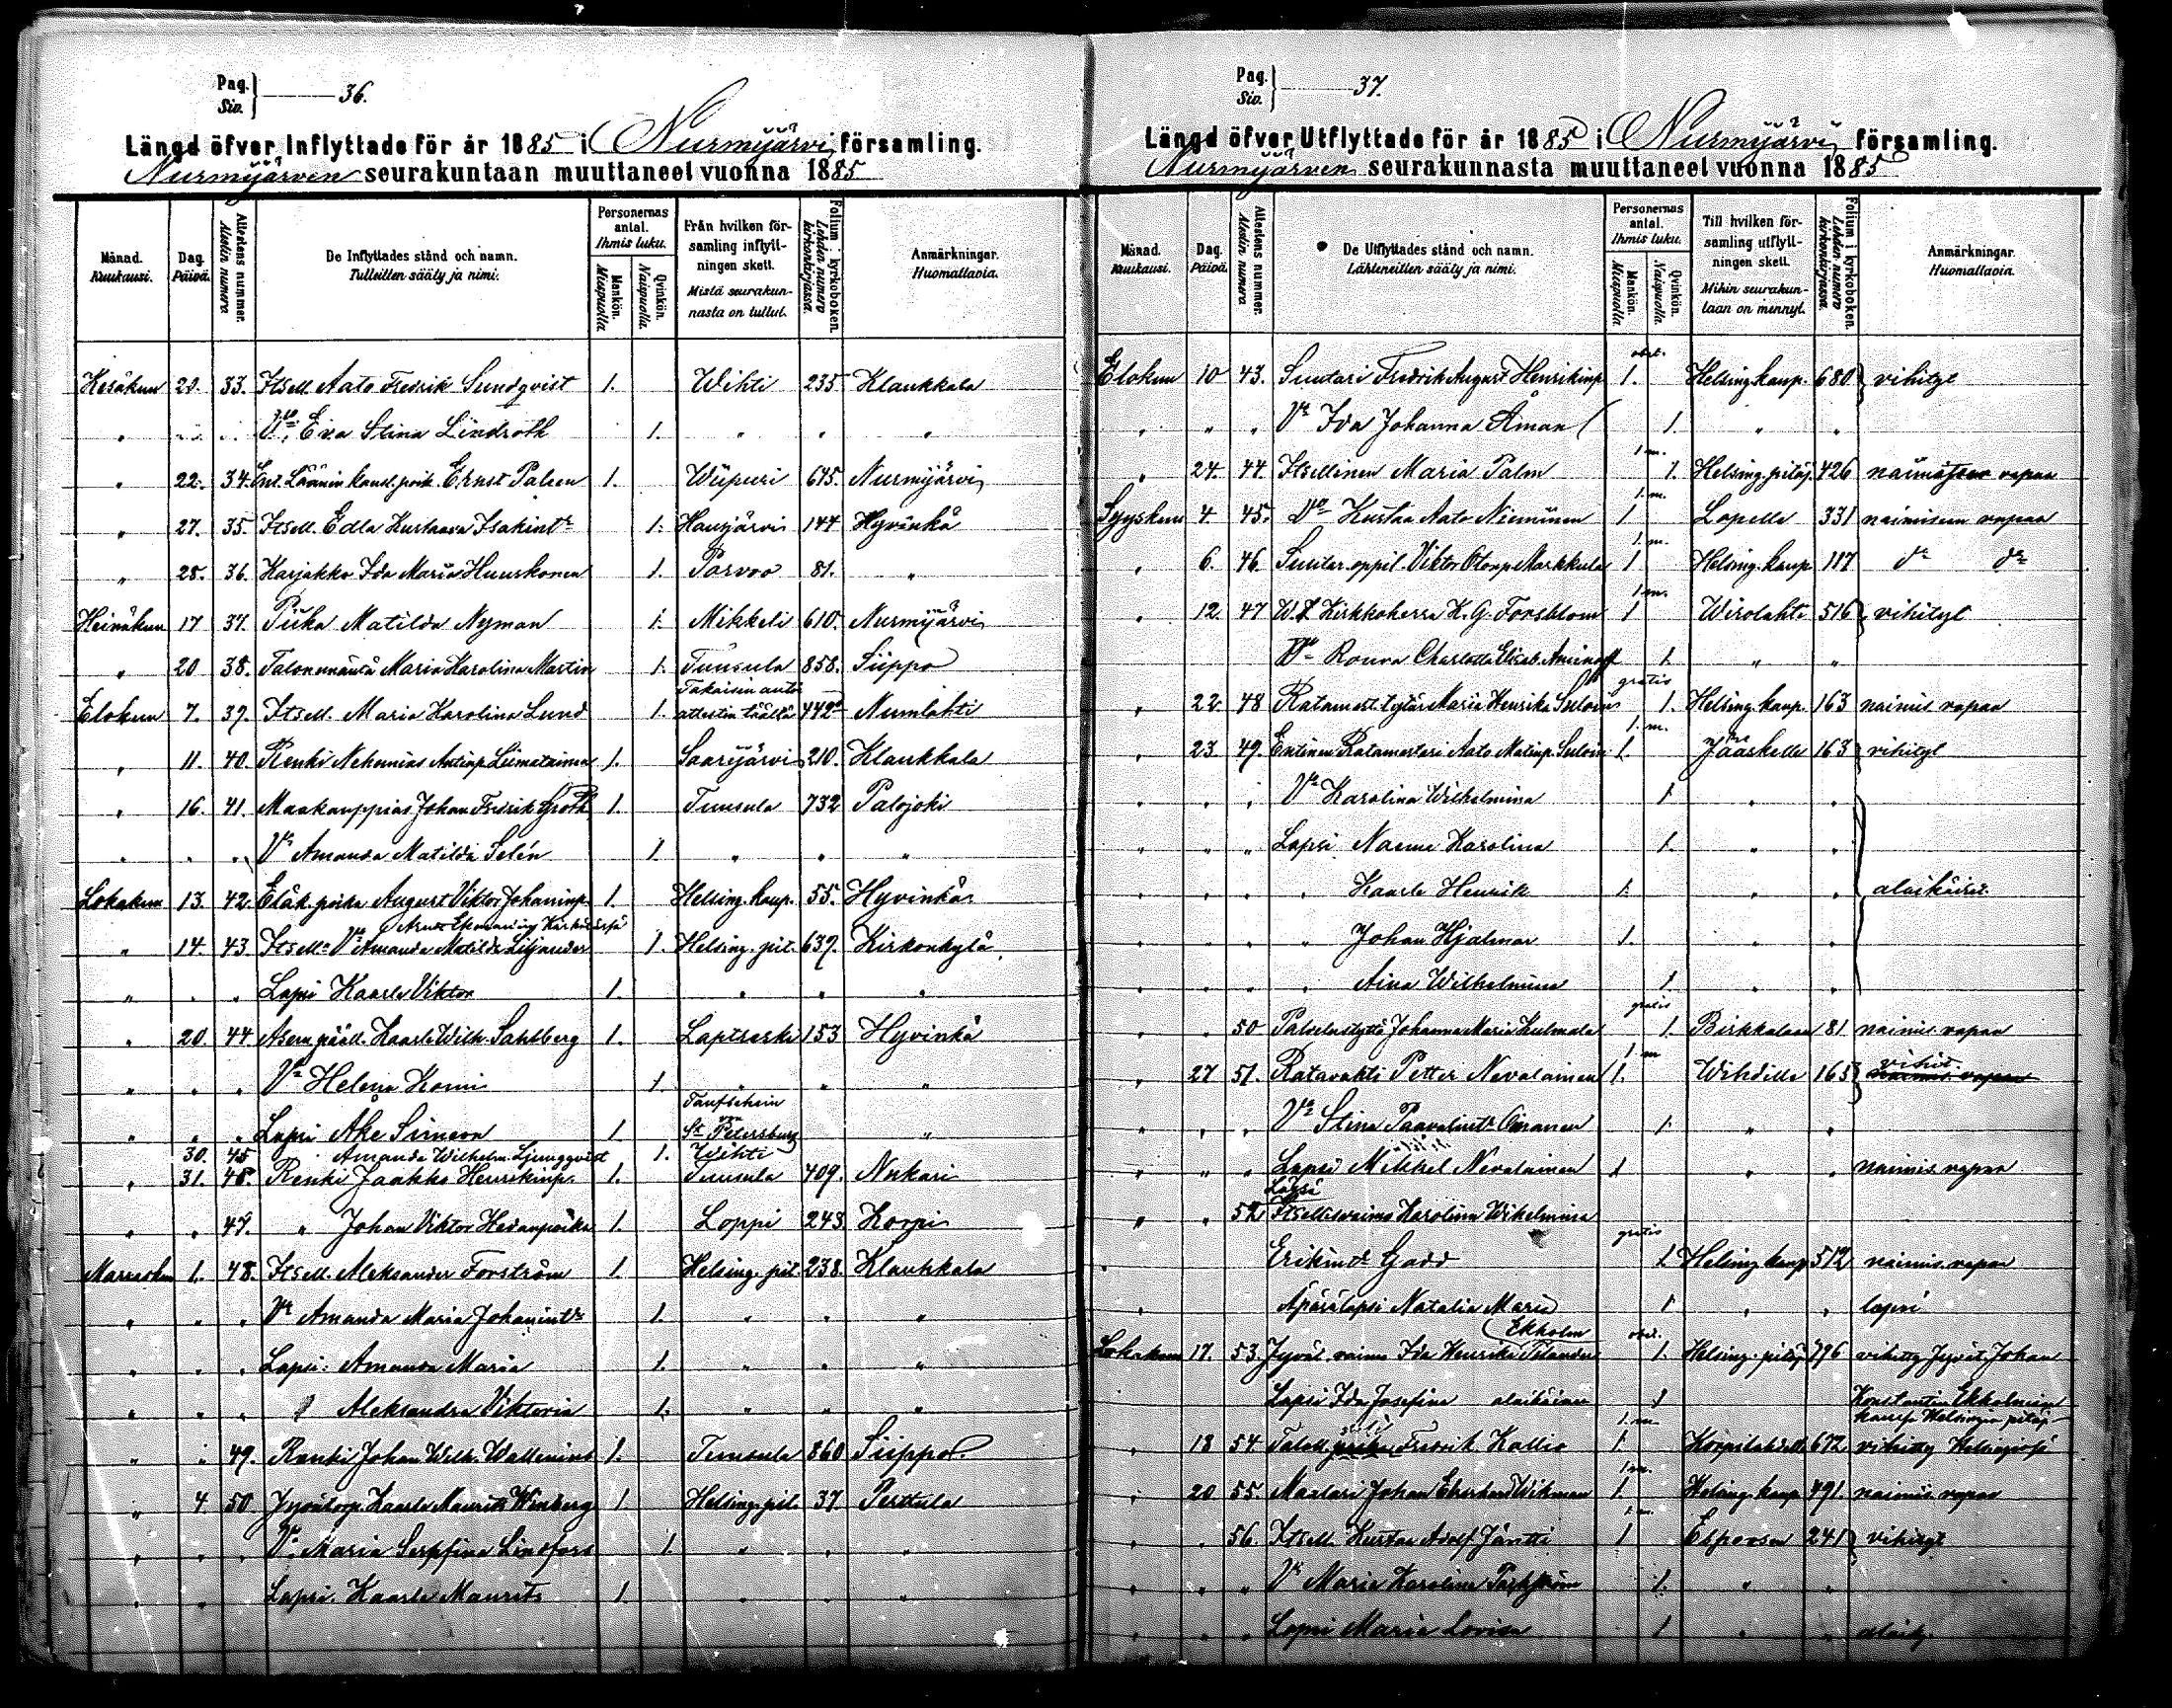 Pag.
Siv.
36.
Längd öfver Inflyttade för år 1885 i Nurmijärvi församling.
Nurmijärven seurakuntaan muuttaneet vuonna 1885
Månad. Kuukausi.
Dag. Päivä.
Attestens nummer. Atestin numero
De Inflyttades stånd och namn. Tulleitten sääty ja nimi.
Personernas antal. Ihmis luku.
Mankön. Miespuolia
Qvinkön. Naispuolia.
Från hvilken församling inflyttningen skett. Mistä seurakunnasta on tullut.
Folium i kyrkoboken. Lehden numero kirkonkirjassa.
Anmärkningar. Huomattavia.
Kesäkuu 20. 33. Itsell. Aato Fredrik Sundqvist 1. Wihti 235 Klaukkala
" " " Vo Eva Stina Lindroth 1. " " "
" 22. 34. Ent. Läänin kansl. poik. Ernst Palsen 1. Wiipuri 675. Nurmijärvi
" 27. 35. Itsell. Edla Kustaava Isakintr 1. Hausjärvi 144 Hyvinkä
" 28. 36. Karjakko Ida Maria Huuskonen 1. Porvoo 81. "
Heinäkuu 17 37. Piika Matilda Nyman 1. Mikkeli 610. Nurmijärvi
" 20 38. Talon emäntä Maria Karolina Martin 1. Tuusula 858. Siippo
Takaisin antoi
Elokuu 7. 39. Itsell. Maria Karolina Lund 1. attestin täällä 442 Numlahti
" 11. 40. Renki Nehemias Antinp. Liimatainen 1. Saarijärvi 210. Klaukkala
" 16. 41. Maakauppias Johan Fredrik Groth 1. Tuusula 732 Palojoki
" " " Vo Amanda Matilda Selén 1 " " "
Lokakuu 13. 42. Eläk. poika August Viktor Johaninp. 1. Helsing. kaup. 55. Hyvinkä
" 14. 43. Itsell. Vo Amanda Matilda Liljander 1. Helsing. pit. 639. Kirkonkylä
" " " Lapsi Kaarle Viktor 1. " " "
" 20. 44 Asem. pääll. Kaarle Wilh. Sahlberg 1. Laptraski 153 Hyvinkä
" " " Vo Helena Komi 1. " " "
Taufschein
" " " Lapsi Åke Simeon 1 von St Petersburg "
30. 45 Amanda Wilhelm. Ljunggqvist 1. Wihti
" 31. 46. Renki Jaakko Henrikinp. 1. Tuusula 409. Nukari
" " 47. " Johan Viktor Hedanpoika 1. Loppi 243. Korpi
Marraskuu 1. 48. Itsell. Aleksander Forström 1. Helsing. pit. 238. Klaukkala
" " " Vo Amanda Maria Johanintr 1. " " "
" " " Lapsi: Amanda Maria 1. " " "
" " " " Aleksandra Viktoria 1. " " "
" " 49. Renki Johan Wilh. Wallenius 1. Tuusula 860 Siippo
" 4. 50. Jyvätorp. Kaarle Maurits Winberg 1 Helsing. pit. 37. Perttula
" " " Vo Maria Serafina Lindfors 1. " " "
" " Lapsi. Kaarle Maurits 1. " "
Pag.
Siv.
37.
Längd öfver Utflyttade för år 1885 i Nurmijärvi församling.
Nurmijärven seurakunnasta muuttaneet vuonna 1885
Månad. Kuukausi.
Dag. Päivä.
Attestens nummer. Atestin numero
De Utflyttades stånd och namn. Lähteneitten sääty ja nimi.
Personernas antal. Ihmis luku.
Mankön. Miespuolia
Qvinkön. Naispuolia.
Till hvilken församling utflyttningen skett. Mihin seurakuntaan on mennyt.
Folium i kyrkoboken. Lehden numero kirkonkirjassa.
Anmärkningar. Huomattavia.
Elokuu 10 43. Suutari Fredrik August Henrikinp 1. Helsing. kaup. 680 vihityt
" " " Vo Ida Johanna Åman 1. " "
1 m.
" 24. 44. Itsellinen Maria Palm 1. Helsing. pitäj. 426 naimisen vapaa
1. m.
Syyskuu 4. 45. Do Kustaa Aato Nieminen 1 Lopella 331 naimisen vapaa
1. m.
" 6. 46. Suutar. oppil. Viktor Ottonp. Markkula 1 Helsing. kaup 117 do do
1 m.
" 12. 47 W. T. Kirkkoherra K. G. Forsblom 1 Wirolahti 516 vihityt
Vo Rouva Charlotta Elisab. Aminoff 1. " "
gratis
" 22. 48 Ratamest. tytär Maria Henrika Selvin 1. Helsing. kaup. 163 naimis vapaa
1. m.
" 23. 49. Entinen Ratamestari Aato Matinp. Selvin 1. Jääskelle 163 vihityt
" " " Vo Karolina Wilhelmina 1 " "
" " " Lapsi Naemi Karolina 1. " "
" " " " Kaarle Henrik 1. " " alaikäiset
" " " " Johan Hjalmar 1. " "
" " " " Aina Wilhelmina 1. " "
gratis
" " 50 Palvelustyttö Johanna Maria Kulmala 1. Birkkalaan 81 naimis. vapaa
1 m
" 27 51. Ratavahti Petter Nevalainen 1. Wihdille 165 vihit. naimis. vapaa
" " " Vo Stina Paavalintr Oinanen 1. " "
" " " Lapsi Mikkel Nevalainen 1 " " naimis. vapaa
Lapsi
" " 52 Itsellisvaimo Karolina Wilhelmina
gratis
" Erikintr Gadd 1 Helsing. kaup 512 naimis. vapaa
" Äpärälapsi Natalia Maria 1 " " lapsi
Ekholm
Lokakuu 17. 53. Jyvät. vaimo Ida Henrika Tilander 1. Helsing. pitäj. 796 vihitty Jyvät. Johan
Lapsi Ida Josefina alaikäinen 1 Konstantin Ekholmin kanssa Helsingin pitäj.
1. m.
" 18 54. Taloll. Fredrik Kallio 1. Korpilahdelle 672. vihitty Helsingissä
1 m.
" 20 55. Maalari Johan Eberhard Wikman 1. Helsing. kaup 491. naimis. vapaa
1. m.
" " 56. Itsell. Kustaa Adolf Jäntti 1 Espoosen 241 vihityt
" " " Vo Maria Karolina 1. " "
" " " Lapsi Maria Lovisa 1 " " alaik.